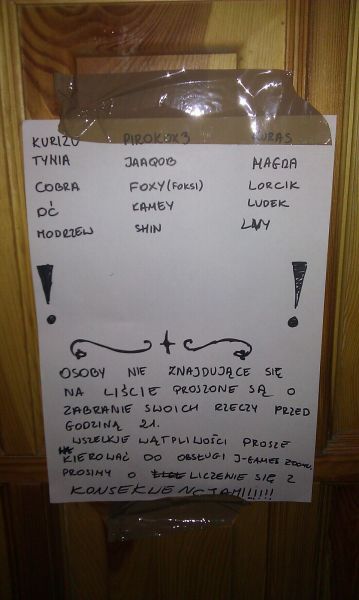 KURIZU PIROKOX3 KURAS
TYNIA JAAQOB MAGDA
COBRA FOXY (FOKSI) LORCIK
DĆ KAMEY LUDEK
MODRZEW SHIN
! !
OSOBY NIE ZNAJDUJĄCE SIĘ
NA LIŚCIE PROSZONE SĄ O
ZABRANIE SWOICH RZECZY PRZED
GODZINĄ 21.
WSZELKIE WĄTPLIWOŚCI PROSZE
KIEROWAĆ DO OBSŁUGI J-GAMES ROOMU.
PROSIMY O LICZENIE SIĘ Z
KONSEKWENCJAMI!!!!!!